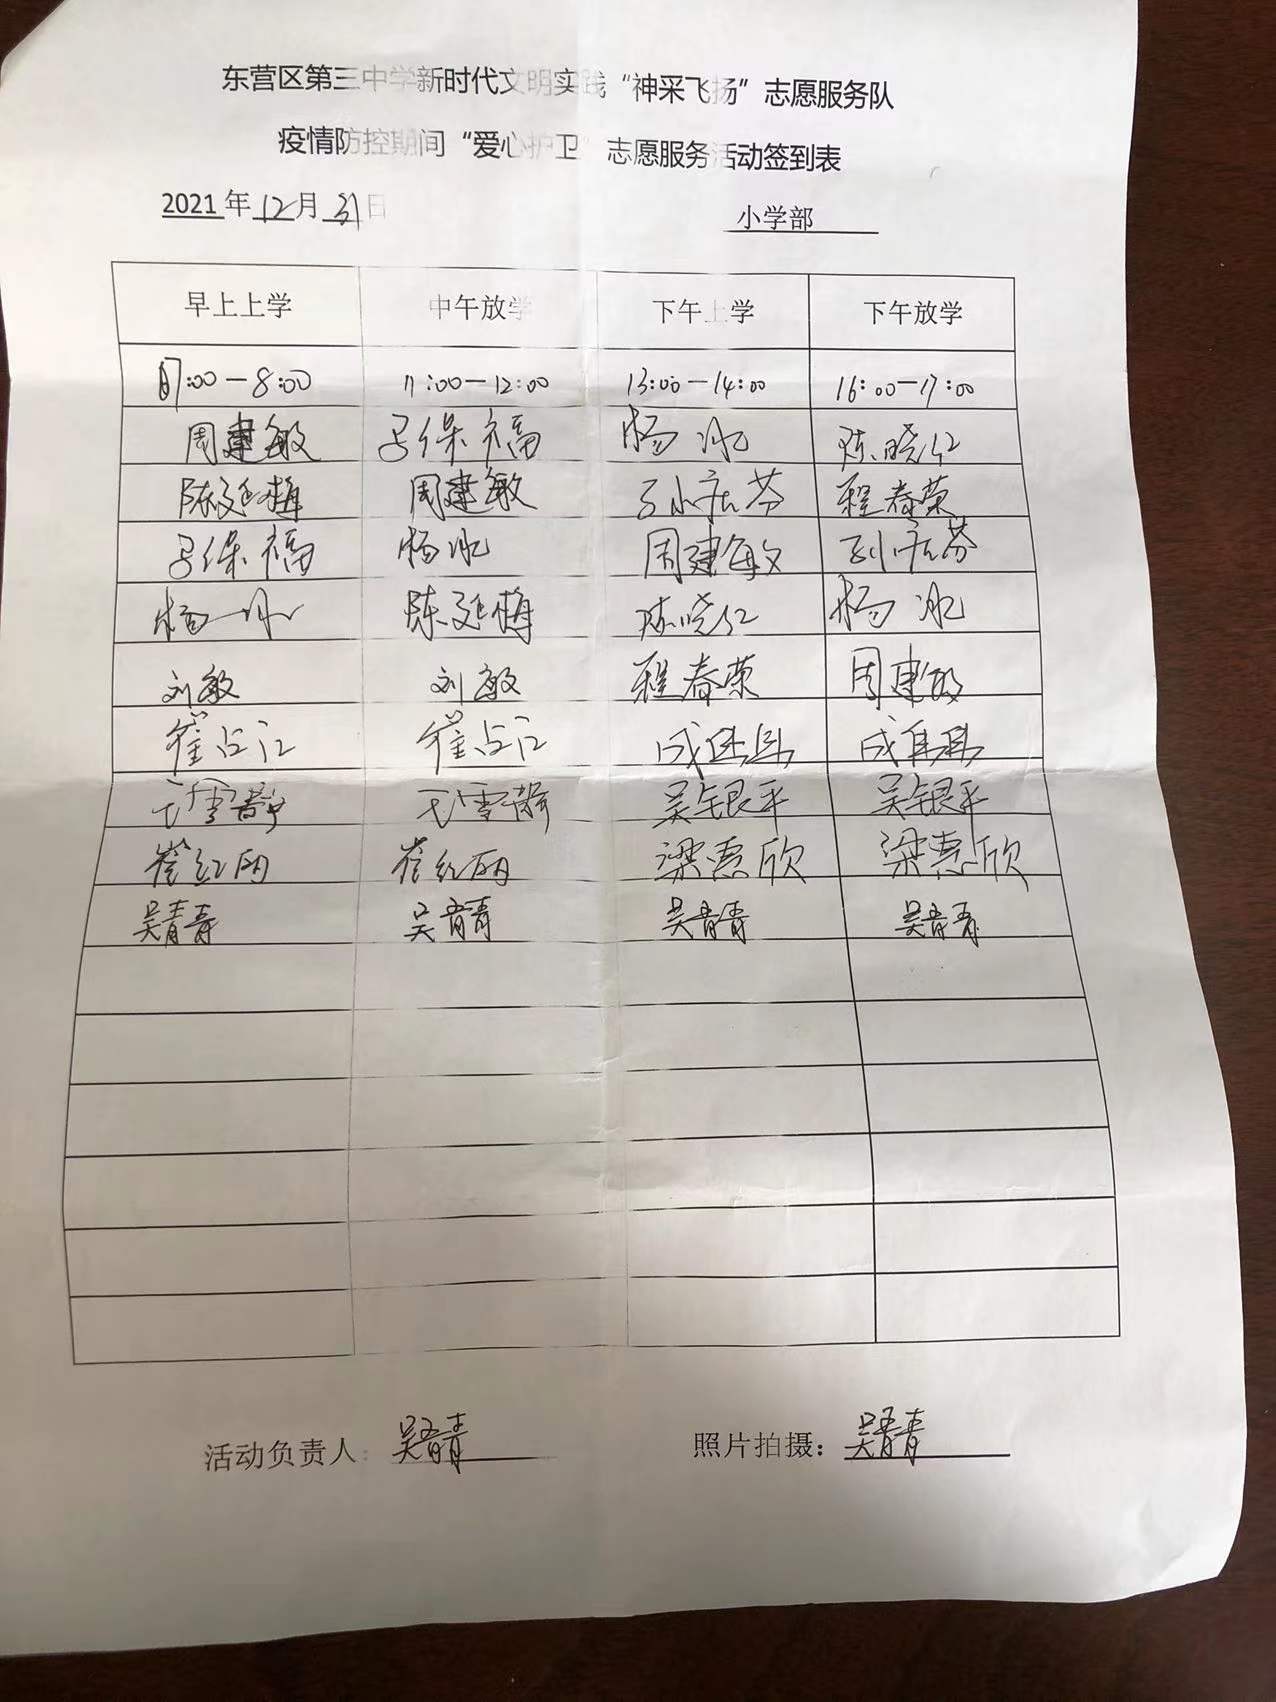 东营区第三中学新时代文明实践“神采飞扬”志愿服务队
疫情防控期间“爱心护卫”志愿服务活动签到表
2021年12月31日 小学部
早上上学 中午放学 下午上学 下午放学
7:00-8:00 11:00-12:00 13:00-14:00 16:00-17:00
周建敏 吕保福 杨冰 陈晓红
陈延梅 周建敏 周建敏 程春荣
吕保福 杨冰 周建敏
杨冰 陈延梅 陈晓红 杨冰
刘敏 刘敏 程春荣 周建敏
崔占江 崔占江
吴银平 吴银平
崔红丽 崔红丽 梁惠欣 梁惠欣
吴青青 吴青青 吴青青 吴青青
活动负责人:吴青青 照片拍摄:吴青青